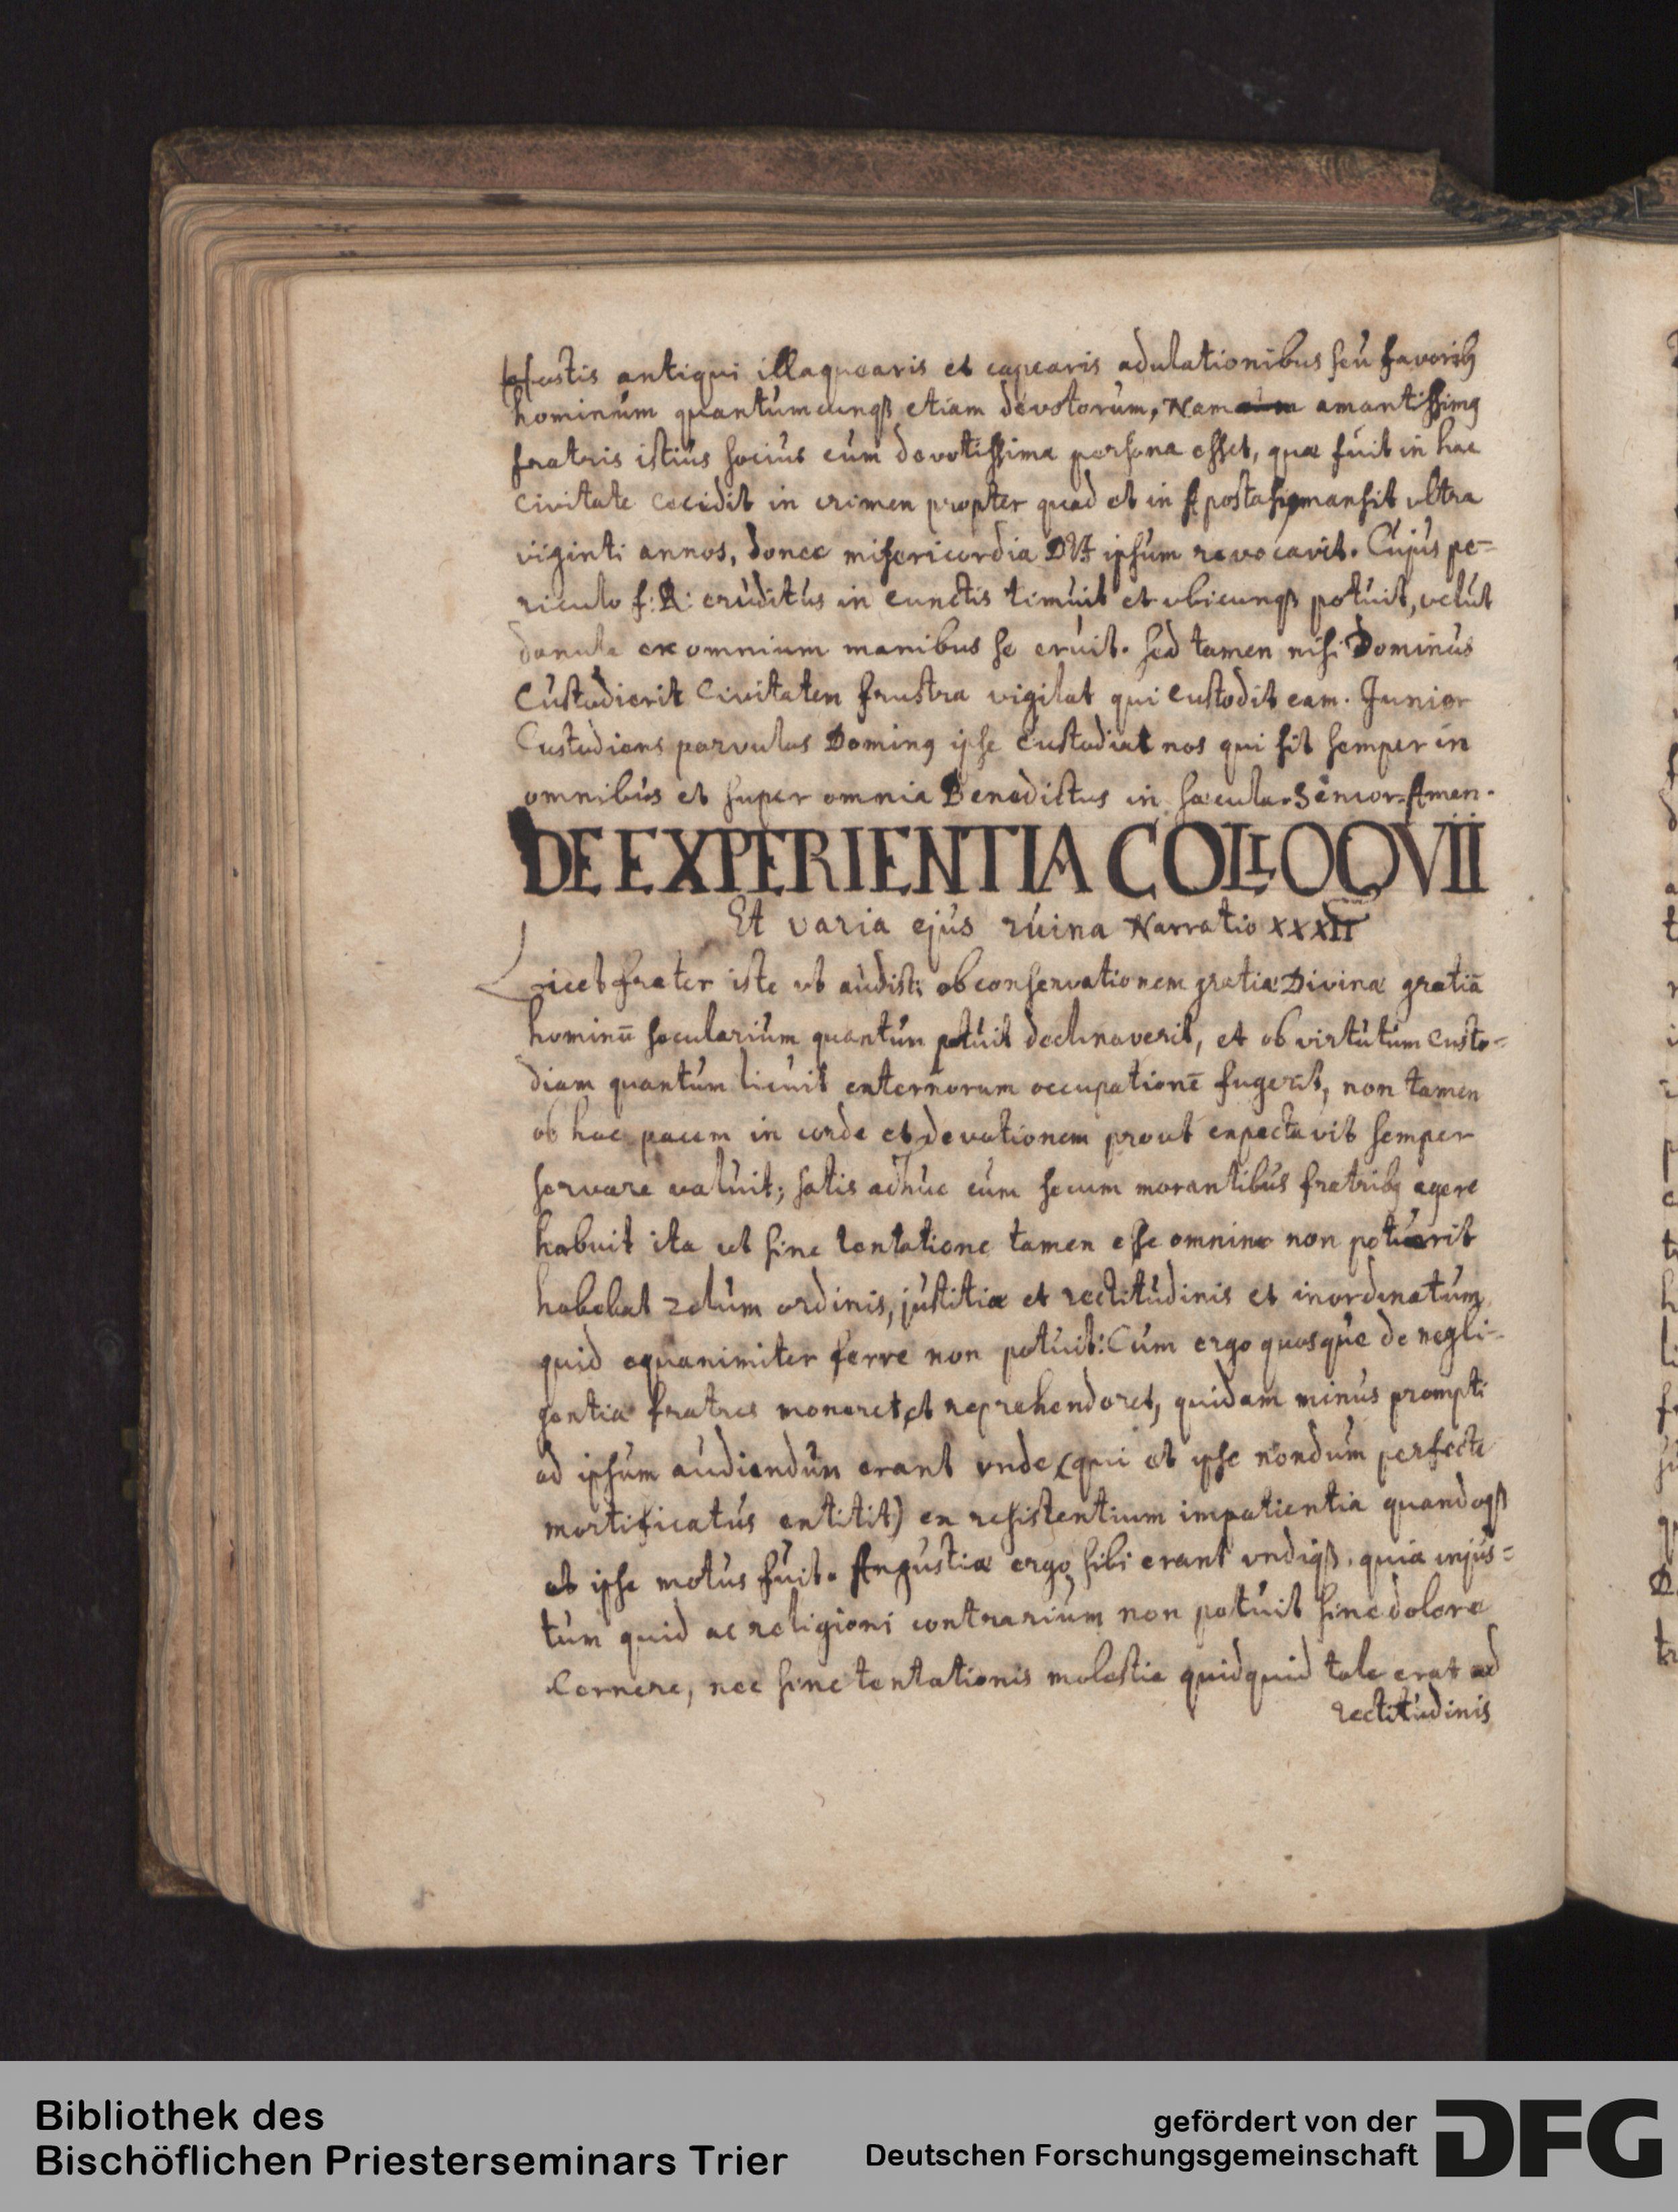 hostis antiqui illaquearis et capearis adulationibus seu favoribꝫ
hominum quantumcunqꝫ etiam devotorum, Nam amantissimꝯ
fratris istius socius cum devotissima persona esset, quæ fuit in hac
civitate cecidit in crimen propter quod et in Apostasia mansit ultra
viginti annos, donec misericordia DEI ipsum revocavit. Cujus pe=
riculo f: R: eruditus in cunctis timuit et ubicunqꝫ potuit, velut
damula ex omnium manibus se eruit. sed tamen nisi Dominus
Custodierit Civitatem frustra vigilat qui custodit eam. Junior
Custodiens parvulos Dominꝯ ipse custodiat nos qui sit semper in
omnibus et super omnia Benedictus in sæcula. Senior. Amen.
DE EXPERIENTIA COLLOQVII
Et varia ejus ruina Narratio XXXII
Licet frater iste ut audisti ob conservationem gratiæ Divinæ gratiā
hominū secularium quantum potuit declinaverit, et ob virtutum custo=
diam quantum licuit externorum occupationē fugerit, non tamen
ob hoc pacem in corde et devotionem prout expectavit semper
servare valuit; satis adhuc cum secum morantibus fratribꝫ agere
habuit ita ut sine tentatione tamen esse omnino non potuerit
habebat zelum ordinis, justitiæ et rectitudinis et inordinatum
quid equanimiter ferre non potuit: Cum ergo quosque de negli=
gentia fratres moneret et reprehenderet, quidam minus prompti
ad ipsum audiendum erant vnde (qui et ipse nondum perfecte
mortificatus extitit) ex resistentium impatientia quandoqꝫ
et ipse motus fuit. Angustiæ ergo sibi erant vndiqꝫ. quia injus=
tum quid ac religioni contrarium non potuit sine dolore
Cernere, nec sine tentationis molestia quidquid tale erat ad
rectitudinis
Bibliothek des
Bischöflichen Priesterseminars Trier
gefördert von der
Deutschen Forschungsgemeinschaft
DFG